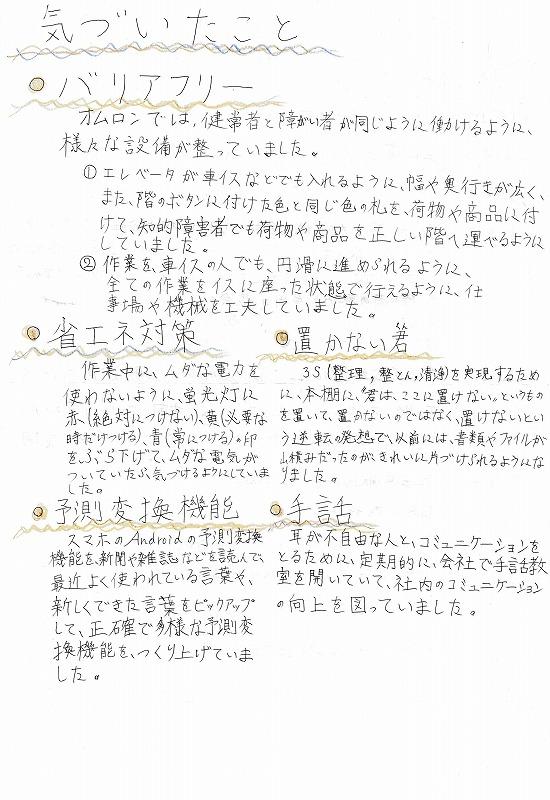 気づいたこと
バリアフリー
オムロンでは、健常者と障がい者が同じように働けるように、
様々な設備が整っていました。
① エレベータが車イスなどでも入れるように、幅や奥行きが広く、
また、階のボタンに付けた色と同じ色の札を、荷物や商品に付
けて、知的障害者でも荷物や商品を正しい階へ運べるように
していました。
② 作業を、車イスの人でも、円滑に進められるように、
全ての作業をイスに座った状態で行えるように、仕
事場や機械を工夫していました。
省エネ対策
作業中に、ムダな電力を
使わないように、蛍光灯に
赤(絶対につけない)、黄(必要な
時だけつける)、青(常につける)の印
をぶら下げて、ムダな電気が
ついていたら、気づけるようにしていま
した。
置かない君
3S(整理,整とん,清浄)を実現するため
に、本棚に、"君は、ここに置けない"というもの
を置いて、置かないのではなく、置けないとい
う逆転の発想で、以前には、書類やファイルが
山積みだったのが、きれいに片づけられるようにな
りました。
予測変換機能
スマホのAndroidの予測変換
機能を、新聞や雑誌などを読んで、
最近よく使われている言葉や、
新しくできた言葉をピックアップ
して、正確で多様な予測変
換機能を、つくり上げていま
した。
手話
耳が不自由な人と、コミュニケーションを
とるために、定期的に、会社で手話教
室を開いていて、社内のコミュニケーション
の向上を図っていました。